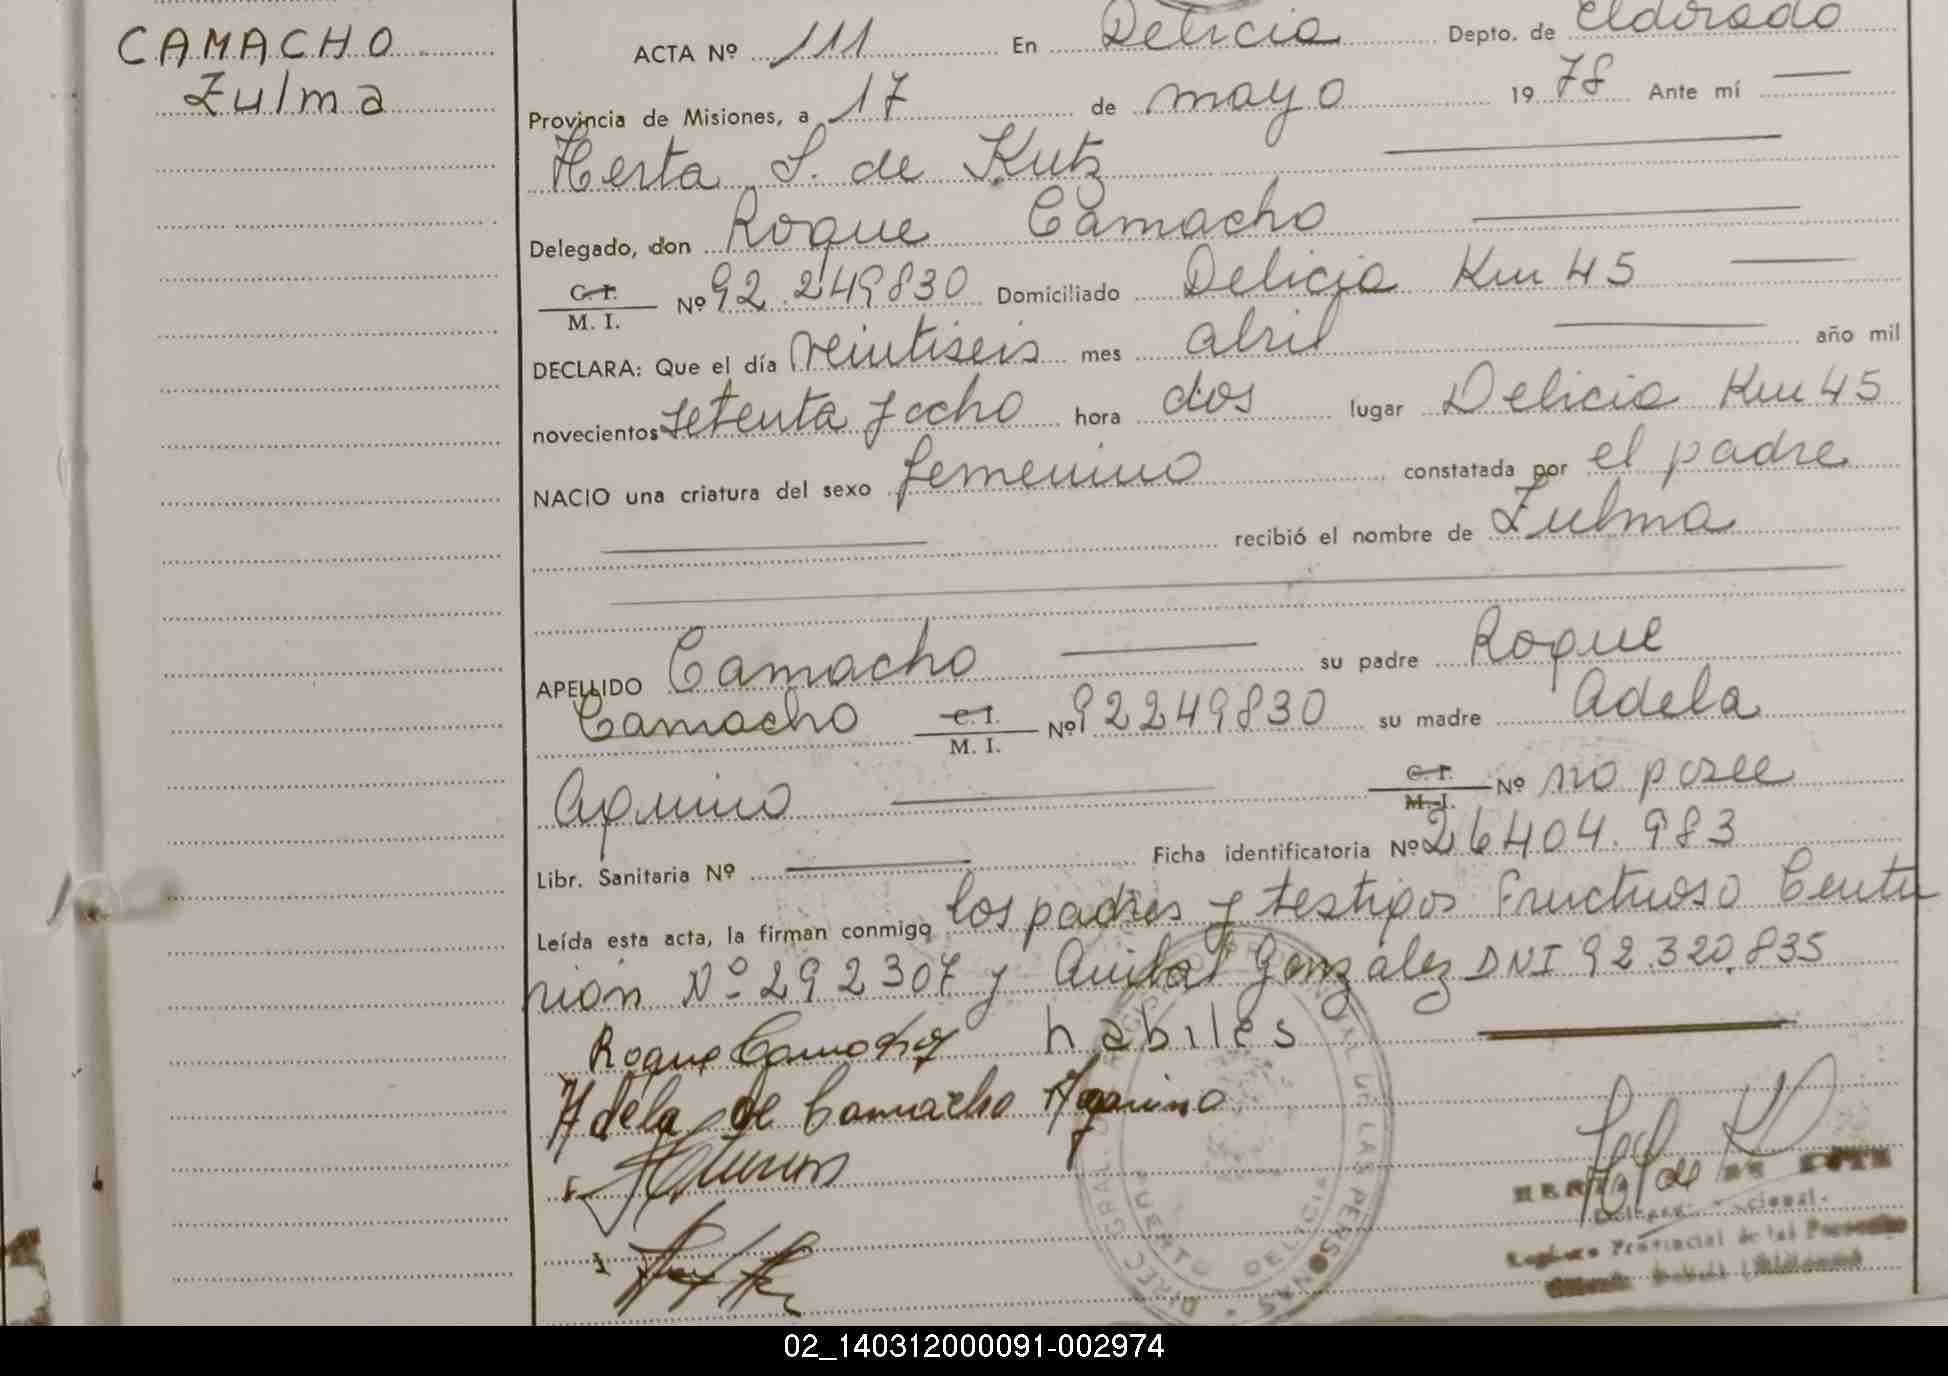 CAMACHO
Zulma
ACTA Nº 111 En Delicia Depto. de Eldorado
Provincia de Misiones, a 17 de mayo 1978 Ante mí
Herta S. de Kutz
Delegado, don Roque Camacho
C. I.
M. I. Nº 92.249830 Domiciliado Delicia Km 45
DECLARA: Que el día veintiseis mes abril año mil
novecientos setenta y ocho hora dos lugar Delicia Km 45
NACIO una criatura del sexo femenino constatada por el padre
recibió el nombre de Zulma
APELLIDO Camacho su padre Roque
Camacho C. I.
M. I. Nº 92249830 su madre Adela
Aquino C. I.
M. I. Nº no posee
Libr. Sanitaria Nº Ficha identificatoria Nº 26404.983
Leída esta acta, la firman conmigo los padres y testigos Fructuoso Centu
rión Nº 292307 y Anibal Gonzalez DNI 92.320.835
habiles
Roque Camacho
Adela de Camacho Aquino
DIREC. GRAL. DE LAS PERSONAS
PUERTO DELICIA
Registro Provincial de las Personas
02_140312000091-002974